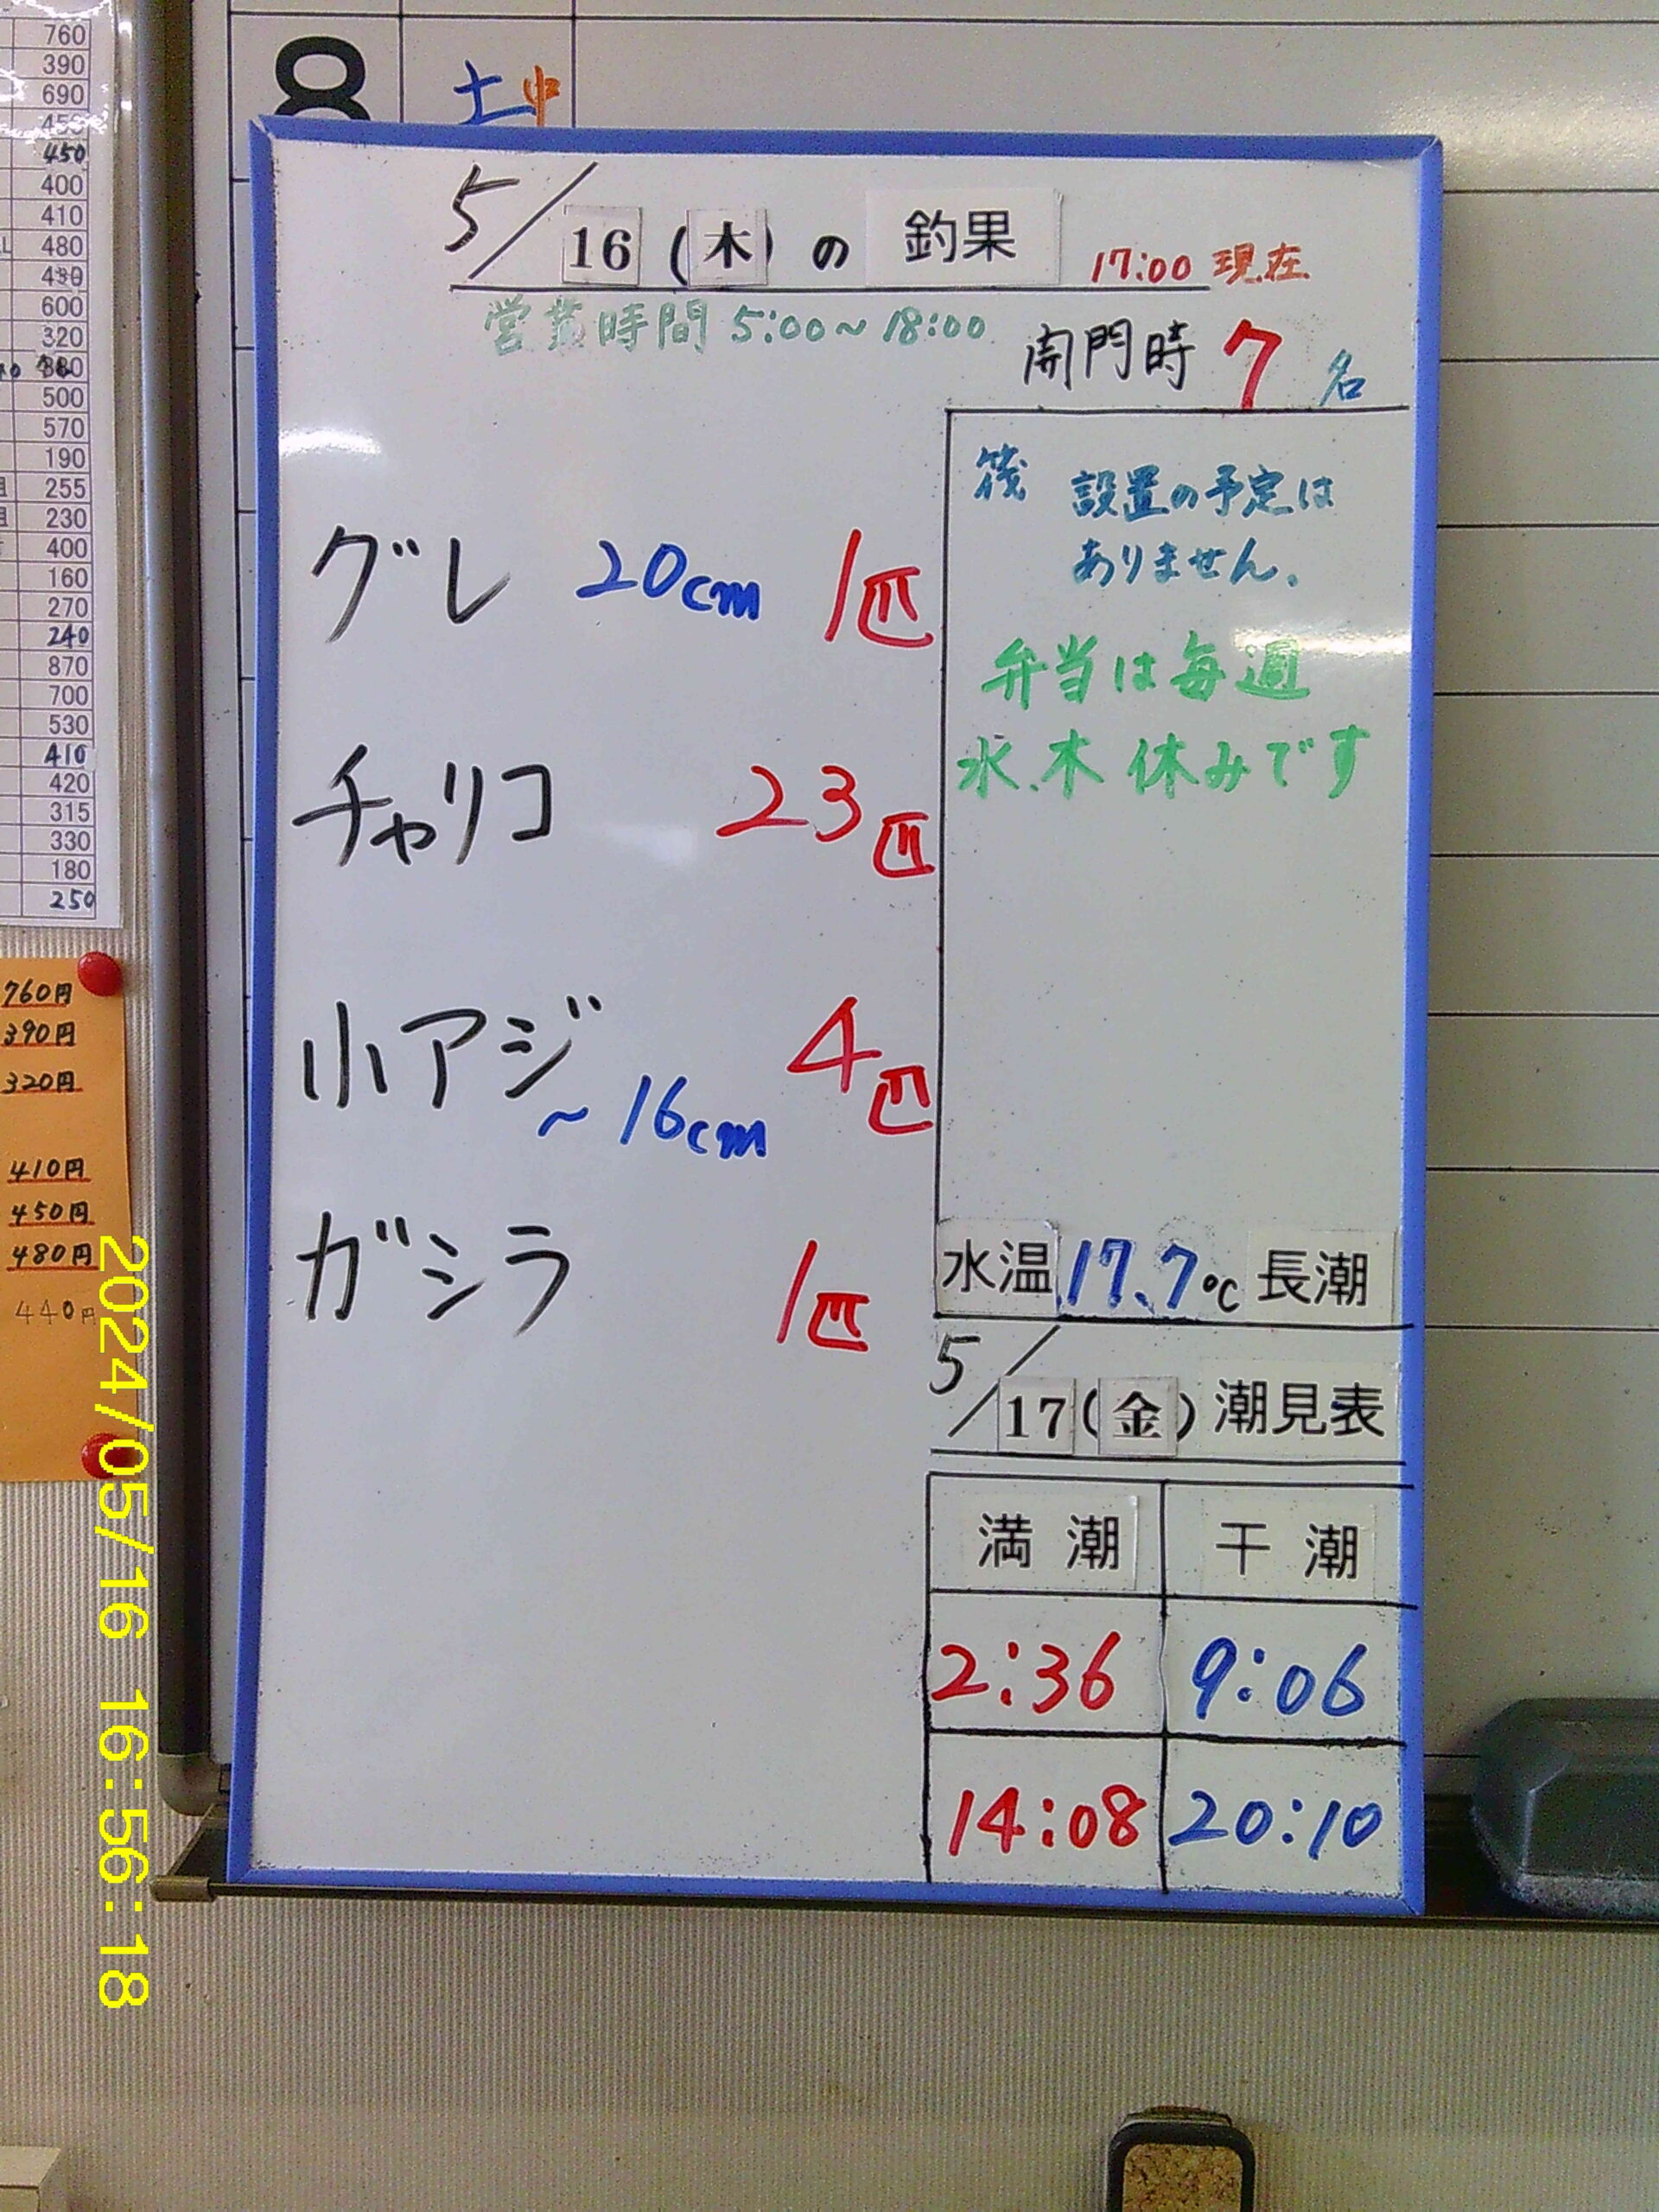 760
390
690
450
400
410
480
430
600
320
500
570
190
255
230
400
160
270
240
870
700
530
410
420
315
330
180
250
760円
390円
320円
410円
450円
480円
440円
8 土 中
5/16(木)の 釣果 17:00 現在
営業時間 5:00~18:00
開門時 7名
筏 設置の予定は
ありません。
弁当は毎週
水.木 休みです
グレ 20cm 1匹
チャリコ 23匹
小アジ ~16cm 4匹
ガシラ 1匹
水温 17.7℃ 長潮
5/17(金)潮見表
満潮 干潮
2:36 9:06
14:08 20:10
2024/05/16 16:56:18